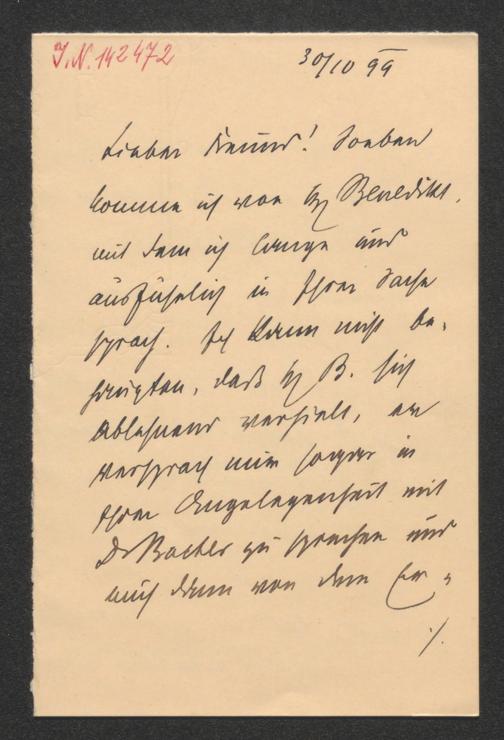 I.N. 142472
30/10 99
Lieber Freund! Soeben
komme ich von H Benedikt,
mit dem ich lange und
ausführlich in Ihrer Sache
sprach. Ich kann nicht be-
haupten, daß H B. sich
ablehnend verhielt, er
versprach mir sogar in
Ihrer Angelegenheit mit
Dr Bacher zu sprechen und
mich dann von dem Er-
./.